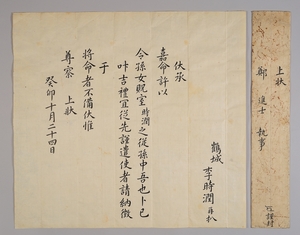 鶴城 李時潤 再拜
伏承
嘉命許以
令孫女貺室時潤之從孫中吾也卜已
叶吉禮宜從先謹遣使者請納徵
于
將命者不備伏惟
尊察 上狀
癸卯十月二十四日
上狀
鄭 進士 執事
謹封